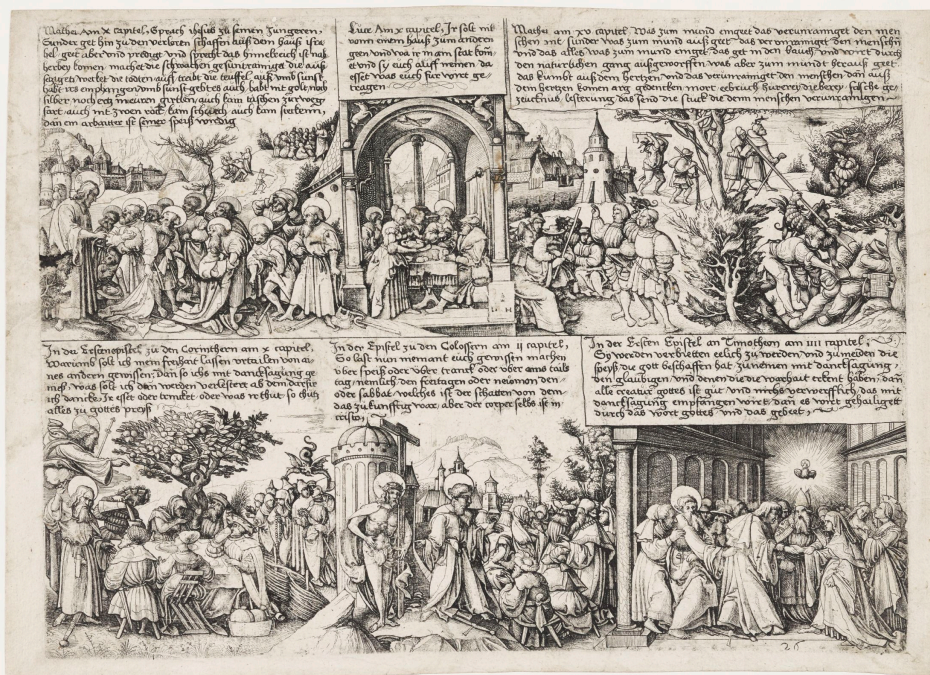 Mathei Am x capitel, Sprach Jhesus zu seinen Jungeren,
Sunder get hin zu den verloren schaffen aus dem hauss isra
hel, geet aber und predigt und sprecht das himelreich ist nah
herbey komen, machet die schwachen gesunt rainiget die aus
setzigen wecket die todten aus treibt die teuffel aus umb sunst
habt irs empfangen umb sunst gebt es auch, habt nit golt noch
silber noch ertz in euren girtlen auch kain taschen zur weeg
fart auch nit zwen röck kain schuech auch kain stecken,
dan ein arbaiter ist seiner speiss wirdig
Luce Am x capitel, Ir solt nit
vonn einem hauss zum anderen
gen und wa ir in ain stat kom
et und sy euch auff nemen da
esset was euch für wirt ge
tragen
Mathei am xv capitel Was zum mund eingeet das verunrainiget den men
schen nit sunder was zum mund auss geet das verunrainiget den menschen
und das alles was zum mund eingeet das get in den bauch und wirt durch
den naturlichen gang ausgeworffen was aber zum mundt heraus geet
das kumbt aus dem hertzen und das verunrainiget den menschen dan auss
dem hertzen komen arg gedencken mort eebruch hurerey dieberey falsche ge
zeucknus, lesterung das send die stuck die denn menschen verunrainigen
In der Ersten epistel zu den Corinthern am x capitel,
Warumb solt ich mein freyhait lassen urtailen von ai
nes andern gewissen, dan so ichs mit dancksagung ge
nies, was solt ich dan werden verlestert ab dem darfür
ich dancke, Ir esset oder trincket oder was ir thut so thutz
alles zu gottes preyss
In der Epistel zu den Colossern am ii capitel,
So last nun niemant euch gewissen machen
uber speiss oder uber tranck oder uber ains tails
tag, nemlich den feirtagen oder neumon den
oder sabbat welches ist der schatten von dem
das zukunftig war, aber der corper selbs ist in
cristo,
In der Ersten Epistel an Timotheon am iiii capitel,
Sy werden verbietten eelich zu werden und zu meiden die
speiss die got beschaffen hat zu nemen mit dancksagung,
den glaubigen und denen die die warhait erkent haben, dan
alle creatur gottes ist gut und nichs verwerfflich das mit
dancksagung empfangen wirt dan es wirt gehailiget
durch das wort gottes und das gebeet,
D H
26